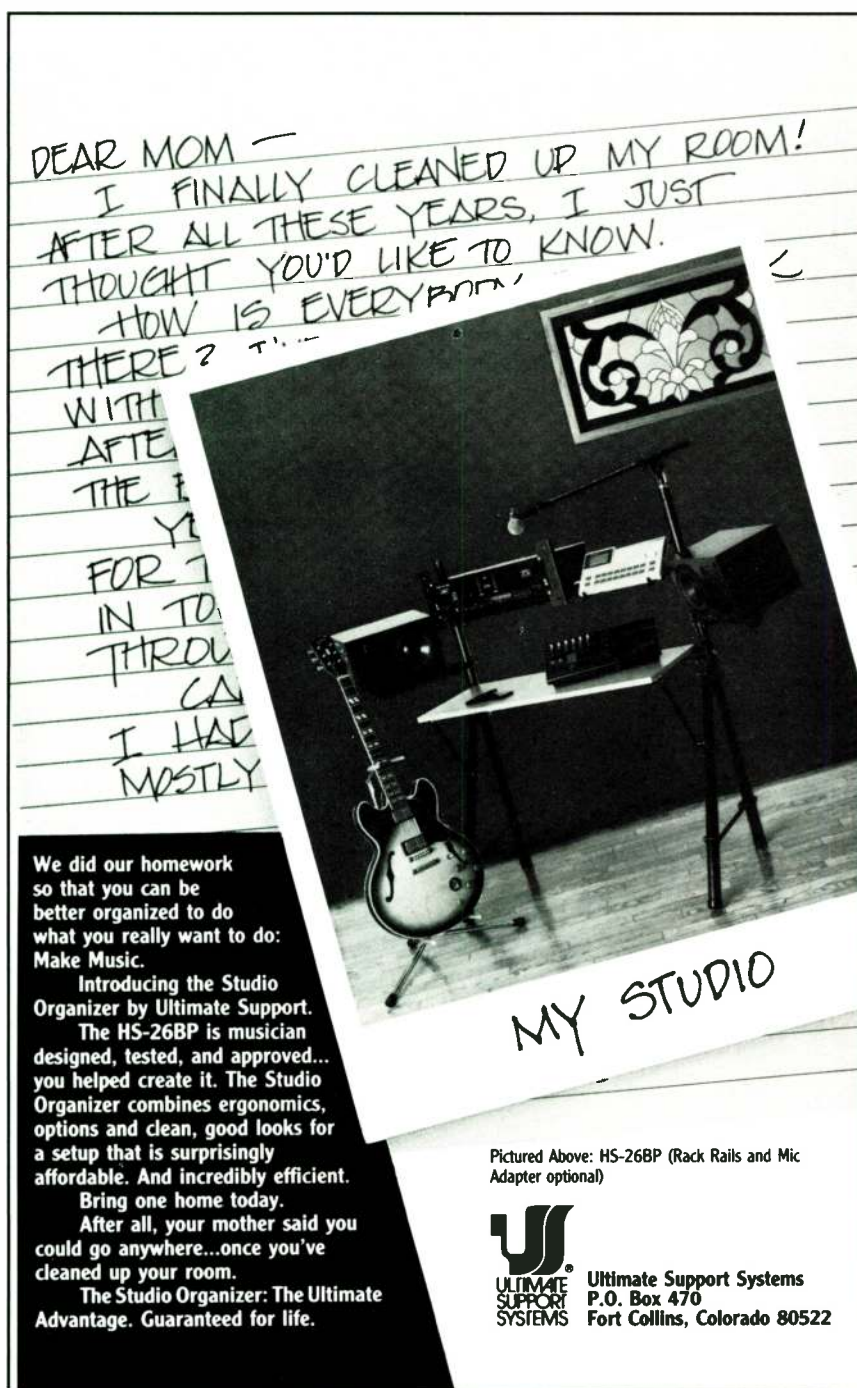 DEAR MOM —
I FINALLY CLEANED UP MY ROOM!
AFTER ALL THESE YEARS, I JUST
THOUGHT YOU'D LIKE TO KNOW.
HOW IS
THERE?
WITH
THE
FOR
IN
I HAD
MOSTLY
MY STUDIO
We did our homework
so that you can be
better organized to do
what you really want to do:
Make Music.
Introducing the Studio
Organizer by Ultimate Support.
The HS-26BP is musician
designed, tested, and approved...
you helped create it. The Studio
Organizer combines ergonomics,
options and clean, good looks for
a setup that is surprisingly
affordable. And incredibly efficient.
Bring one home today.
After all, your mother said you
could go anywhere...once you've
cleaned up your room.
The Studio Organizer: The Ultimate
Advantage. Guaranteed for life.
Pictured Above: HS-26BP (Rack Rails and Mic
Adapter optional)
US®
ULTIMATE
SUPPORT
SYSTEMS
Ultimate Support Systems
P.O. Box 470
Fort Collins, Colorado 80522